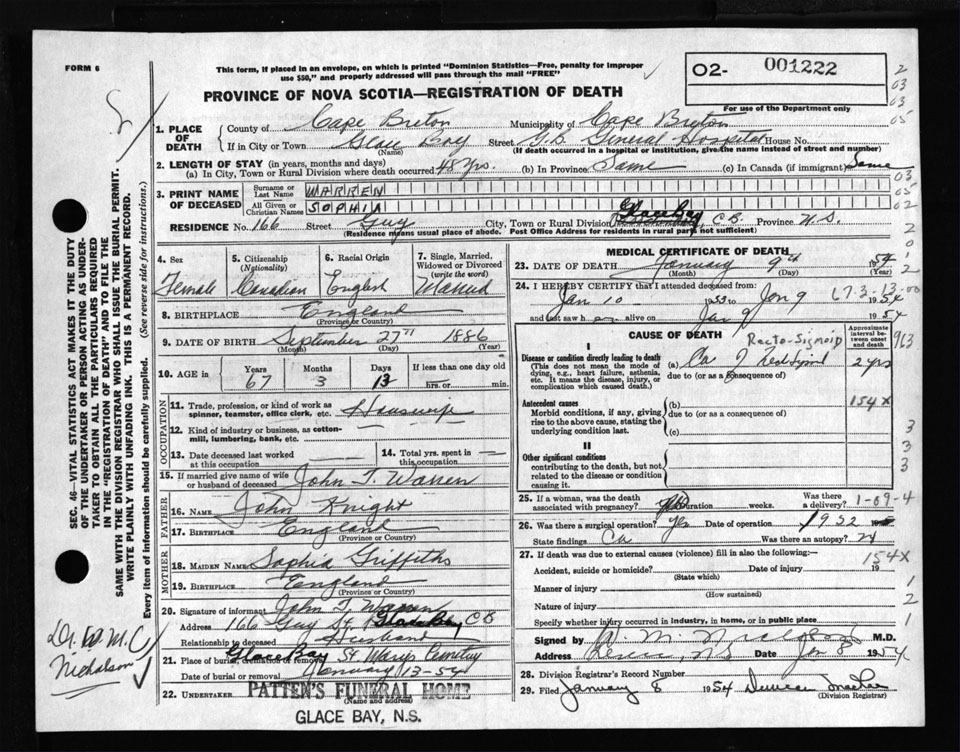 FORM 6
This form, if placed in an envelope, on which is printed "Dominion Statistics—Free, penalty for improper
use $50," and properly addressed will pass through the mail "FREE"
O2- 001222
PROVINCE OF NOVA SCOTIA—REGISTRATION OF DEATH
For use of the Department only
1. PLACE OF DEATH
County of Cape Breton Municipality of Cape Breton
If in City or Town Glace Bay Street G.B. General Hospital House No.
(Name) (If death occurred in a hospital or institution, give the name instead of street and number)
2. LENGTH OF STAY (in years, months and days)
(a) In City, Town or Rural Division where death occurred 48 yrs. (b) In Province Same (c) In Canada (if immigrant) Same
3. PRINT NAME OF DECEASED
Surname or Last Name WARREN
All Given or Christian Names SOPHIA
RESIDENCE No. 166 Street Guy City, Town or Rural Division Glace Bay, C.B. Province N.S.
(Residence means usual place of abode. Post Office Address for residents in rural parts not sufficient)
4. Sex Female
5. Citizenship (Nationality) Canadian
6. Racial Origin English
7. Single, Married, Widowed or Divorced (write the word) Married
8. BIRTHPLACE England
(Province or Country)
9. DATE OF BIRTH September 27th 1886
(Month) (Day) (Year)
10. AGE in Years 67 Months 3 Days 13 If less than one day old
hrs. or min.
OCCUPATION
11. Trade, profession, or kind of work as
spinner, teamster, office clerk, etc. Housewife
12. Kind of industry or business, as cotton-
mill, lumbering, bank, etc. —
13. Date deceased last worked
at this occupation —
14. Total yrs. spent in
this occupation —
15. If married give name of wife
or husband of deceased John T. Warren
FATHER
16. NAME John Knight
17. BIRTHPLACE England
(Province or Country)
MOTHER
18. MAIDEN NAME Sophia Griffiths
19. BIRTHPLACE England
(Province or Country)
20. Signature of informant John T Warren
Address 166 Guy St. Glace Bay, CB
Relationship to deceased Husband
21. Place of burial, cremation or removal Glace Bay St Marys Cemetery
Date of burial or removal January 13-54
22. UNDERTAKER PATTEN'S FUNERAL HOME
(Name and address)
GLACE BAY, N.S.
MEDICAL CERTIFICATE OF DEATH
23. DATE OF DEATH January 9th 1954
(Month) (Day) (Year)
24. I HEREBY CERTIFY that I attended deceased from:
Jan 10 1953 to Jan 9 1954
and last saw h er alive on Jan 9 1954
CAUSE OF DEATH
Approximate interval between onset and death
I
Disease or condition directly leading to death
(This does not mean the mode of dying, e.g., heart failure, asthenia, etc. It means the disease, injury, or complication which caused death.)
Recto-Sigmoid
(a) Ca 2 yrs
due to (or as a consequence of)
Antecedent causes
Morbid conditions, if any, giving rise to the above cause, stating the underlying condition last.
(b) 154X
due to (or as a consequence of)
(c)
II
Other significant conditions
contributing to the death, but not related to the disease or condition causing it.
25. If a woman, was the death
associated with pregnancy? No Duration weeks. Was there a delivery? 1-09-4
26. Was there a surgical operation? Yes Date of operation 1952
State findings Ca Was there an autopsy? No
27. If death was due to external causes (violence) fill in also the following:— 154X
Accident, suicide or homicide? Date of injury 19
(State which)
Manner of injury
(How sustained)
Nature of injury
Specify whether injury occurred in industry, in home, or in public place
Signed by M.D.
Address N.S. Date Jan 8 1954
28. Division Registrar's Record Number
29. Filed January 8 1954 Duncan
(Division Registrar)
SEC. 46—VITAL STATISTICS ACT MAKES IT THE DUTY
OF THE UNDERTAKER OR PERSON ACTING AS UNDER-
TAKER TO OBTAIN ALL THE PARTICULARS REQUIRED
IN THE "REGISTRATION OF DEATH" AND TO FILE THE
SAME WITH THE DIVISION REGISTRAR WHO SHALL ISSUE THE BURIAL PERMIT.
WRITE PLAINLY WITH UNFADING INK. THIS IS A PERMANENT RECORD.
Every item of information should be carefully supplied. (See reverse side for instructions.)
Dr. W. M. C
Nicholson
2
03
03
05
03
05
02
2
0
1
2
67-3-13-00
963
3
3
3
1
2
1